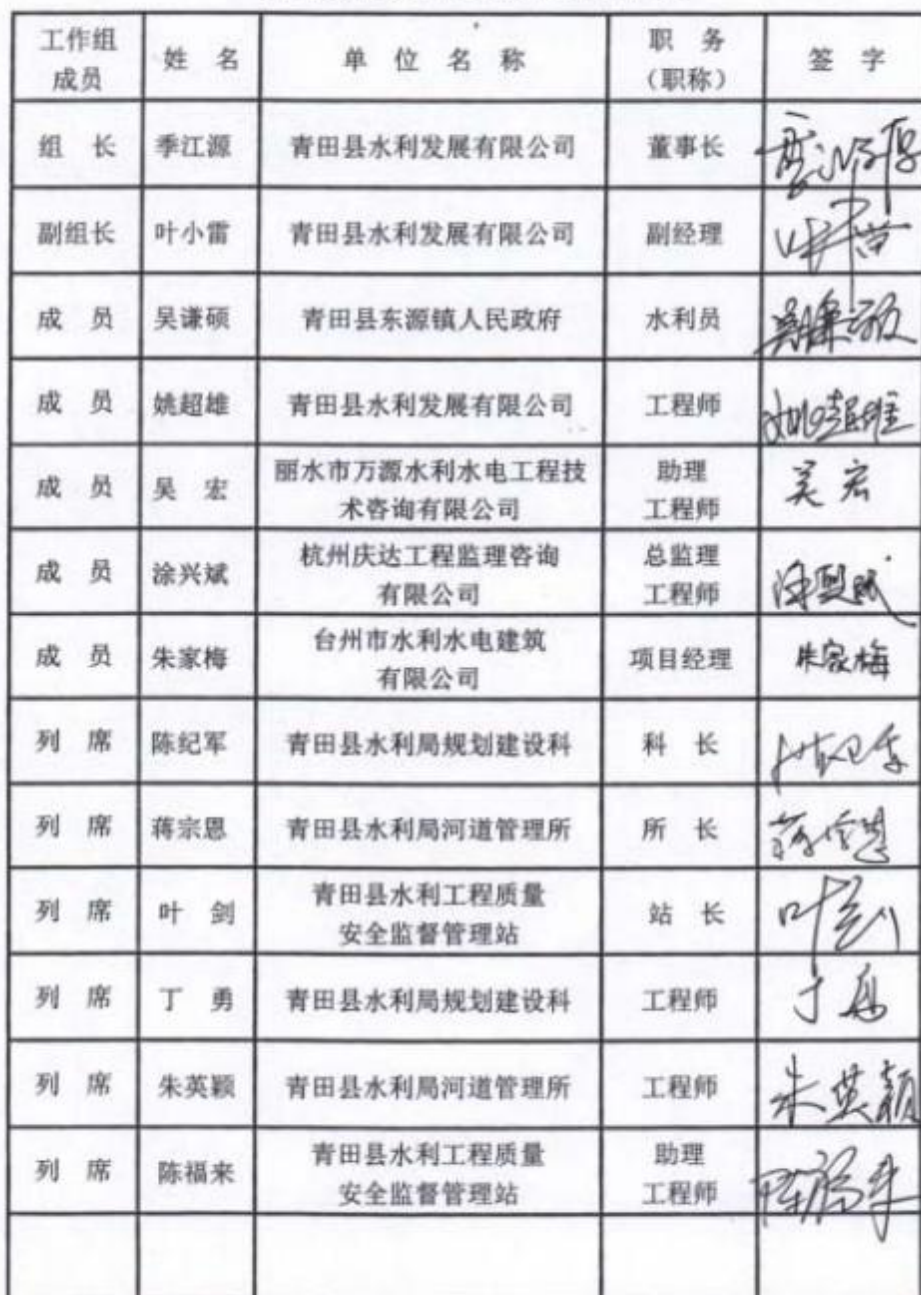 工作组成员 姓 名 单 位 名 称 职 务（职称） 签 字
组 长 季江源 青田县水利发展有限公司 董事长
副组长 叶小雷 青田县水利发展有限公司 副经理
成 员 吴谦硕 青田县东源镇人民政府 水利员 吴谦硕
成 员 姚超雄 青田县水利发展有限公司 工程师 姚超雄
成 员 吴 宏 丽水市万源水利水电工程技术咨询有限公司 助理工程师 吴宏
成 员 涂兴斌 杭州庆达工程监理咨询有限公司 总监理工程师 涂兴斌
成 员 朱家梅 台州市水利水电建筑有限公司 项目经理 朱家梅
列 席 陈纪军 青田县水利局规划建设科 科 长
列 席 蒋宗恩 青田县水利局河道管理所 所 长 蒋宗恩
列 席 叶 剑 青田县水利工程质量安全监督管理站 站 长 叶剑
列 席 丁 勇 青田县水利局规划建设科 工程师 丁勇
列 席 朱英颖 青田县水利局河道管理所 工程师 朱英颖
列 席 陈福来 青田县水利工程质量安全监督管理站 助理工程师 陈福来